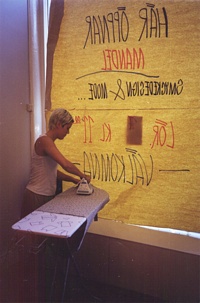 HÄR ÖPPNAR
MANDEL
SMYCKEDESIGN & MODE...
LÖR. KL 11ºº
VÄLKOMNA